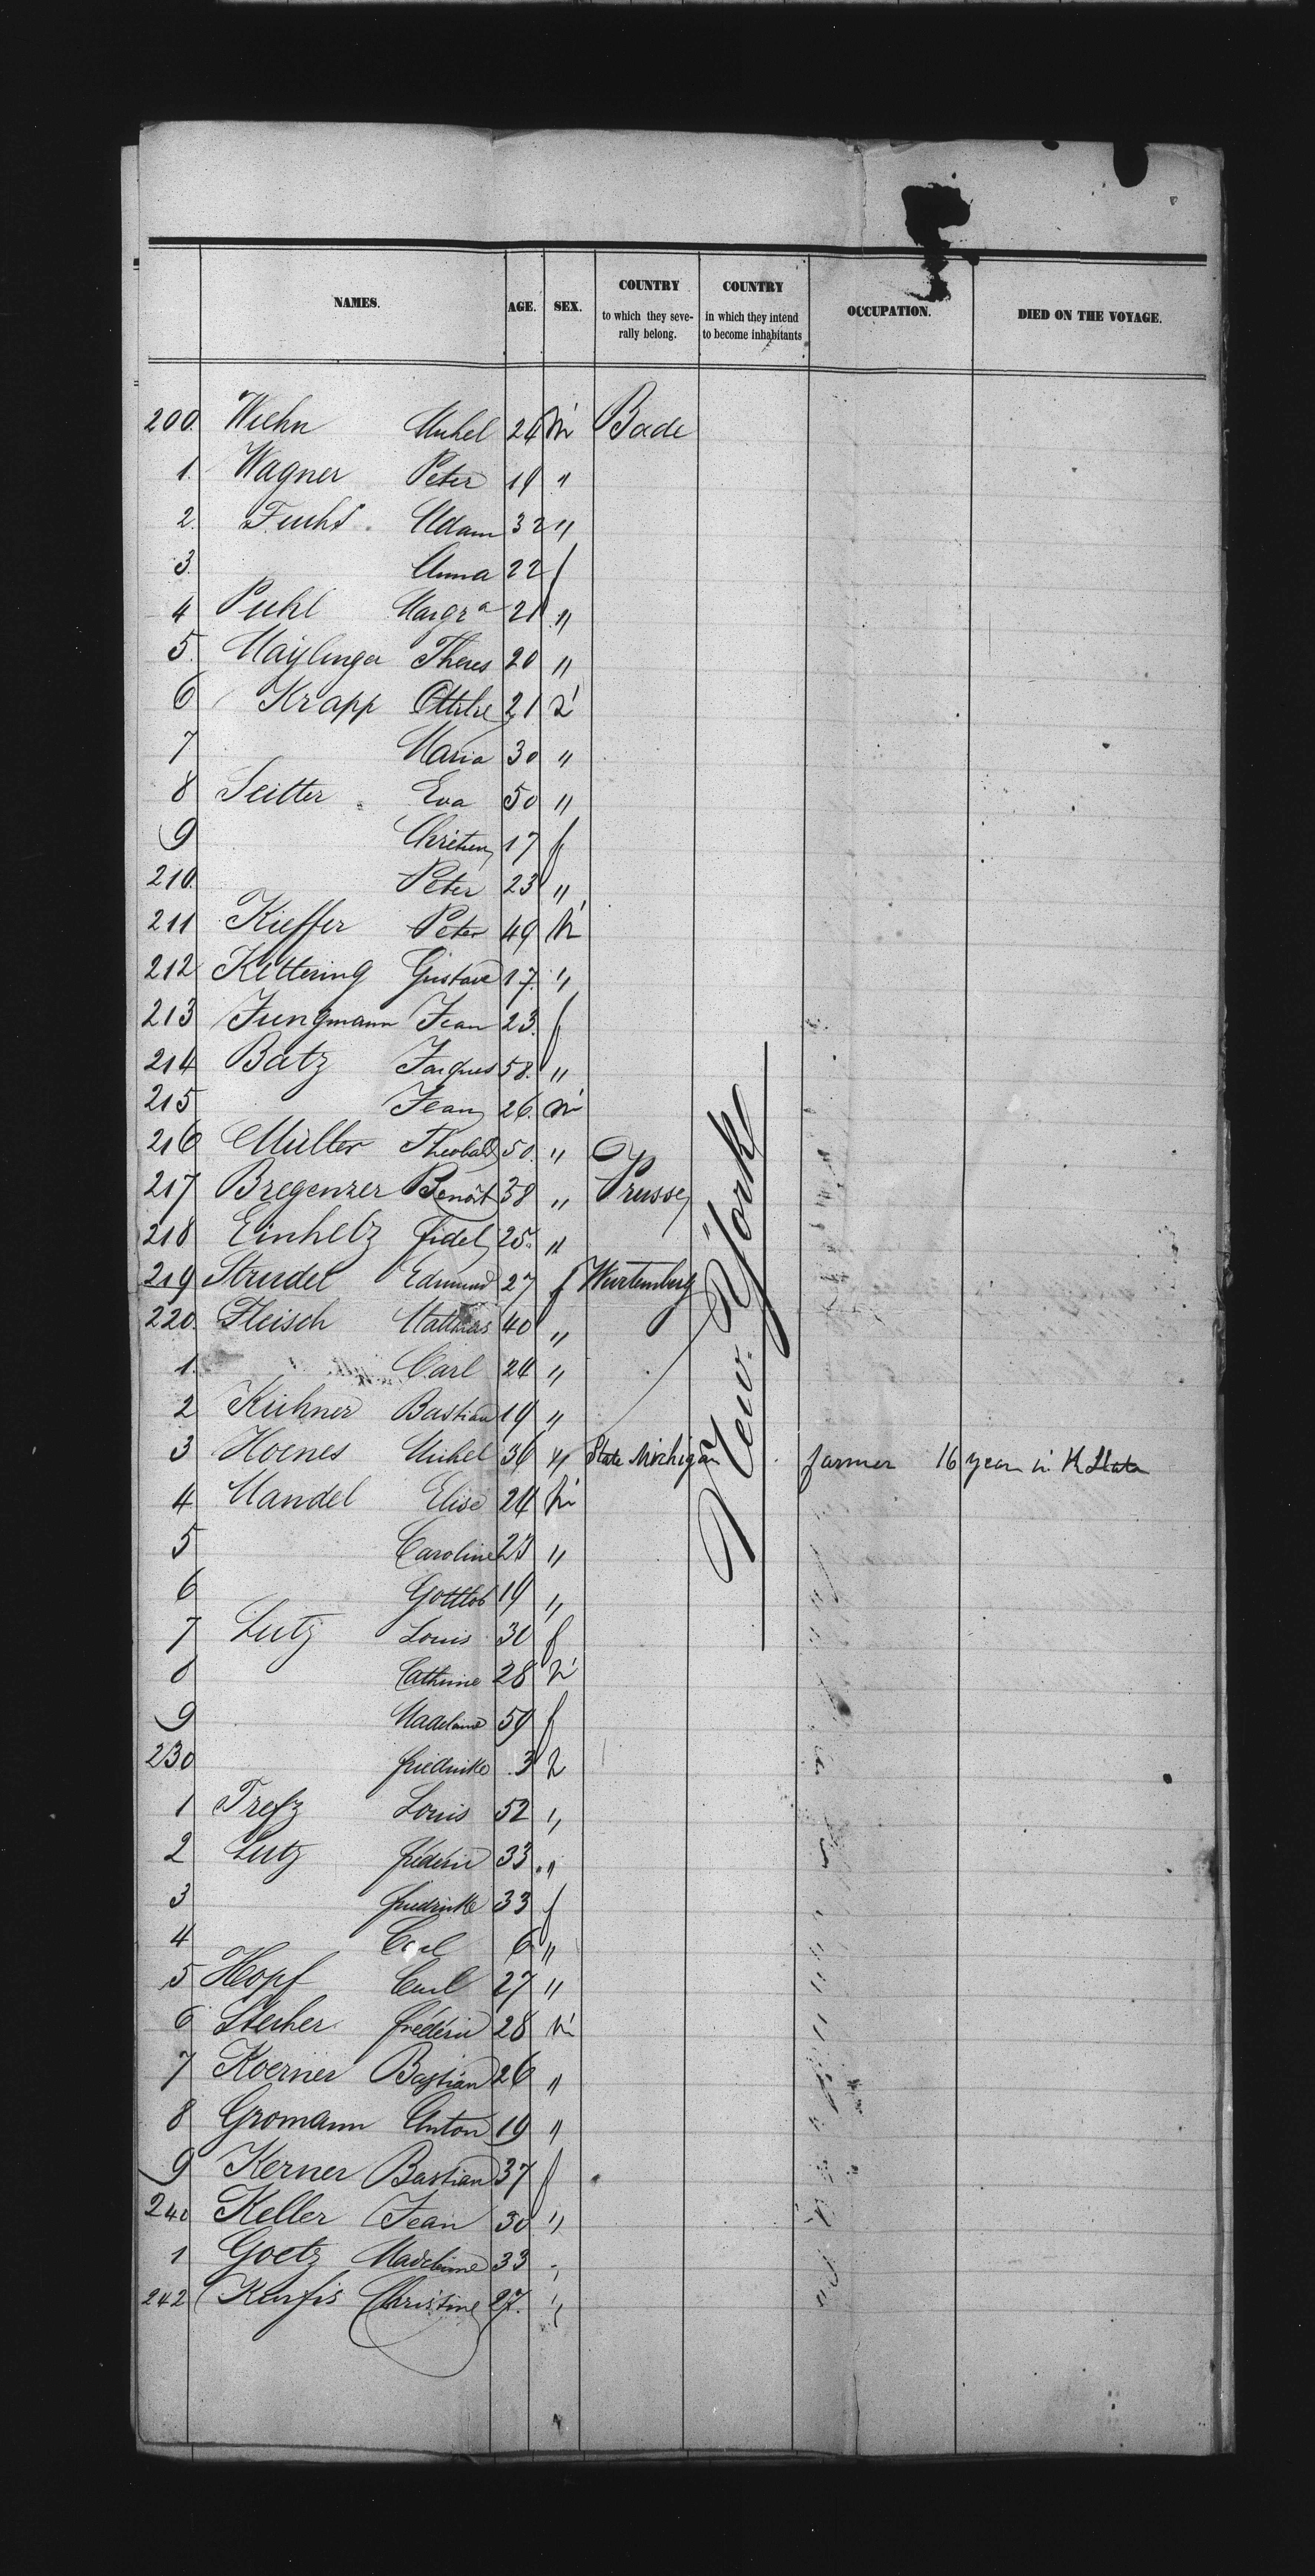 NAMES. AGE. SEX. COUNTRY to which they seve- rally belong. COUNTRY in which they intend to become inhabitants OCCUPATION. DIED ON THE VOYAGE.
200. Wiehn Michel 24 m Bade
1. Wagner Peter 19 "
2. Fuchs Adam 32 "
3. Anna 22 f
4 Puhl Margra 21 "
5. Maylinger Theres 20 "
6 Krapp Ottilie 21 m
7 Maria 30 "
8 Seitter Eva 50 "
9 Chretien 17 f
210. Peter 23 "
211 Kieffer Peter 49 m
212 Kettering Gustave 17. "
213 Jungmann Jean 23. f
214 Batz Jacques 58. "
215 Jean 26. m
216 Müller Theobald 50. "
217 Bregenzer Benoit 38 " Prusse
218 Einhelz fidel 25. "
219 Strudel Edmund 27 f Wurtemberg
220. Fleisch Mathias 40 "
1. Carl 24 "
2 Kichner Bastian 19 "
3 Hoenes Michel 36 " State Michigan farmer 16 year in
4 Mandel Elise 24 m
5 Caroline 23 "
6 Gottlob 19 "
7 Lutz Louis 30 f
8 Catherine 28 m
9 Madelaine 59 f
230 friedrike 3 m
1 Trefz Louis 52 "
2 Lutz frederic 33 "
3 friedrike 33 f
4 Carl 6 "
5 Hopf Carl 27 "
6 Stecher frédéric 28 m
7 Koerner Bastian 26 "
8 Gromann Anton 19 "
9 Kerner Bastian 37 f
240 Keller Jean 30 "
1 Goetz Madeleine 33 "
242 Kurfis Christine 27. "
New-York